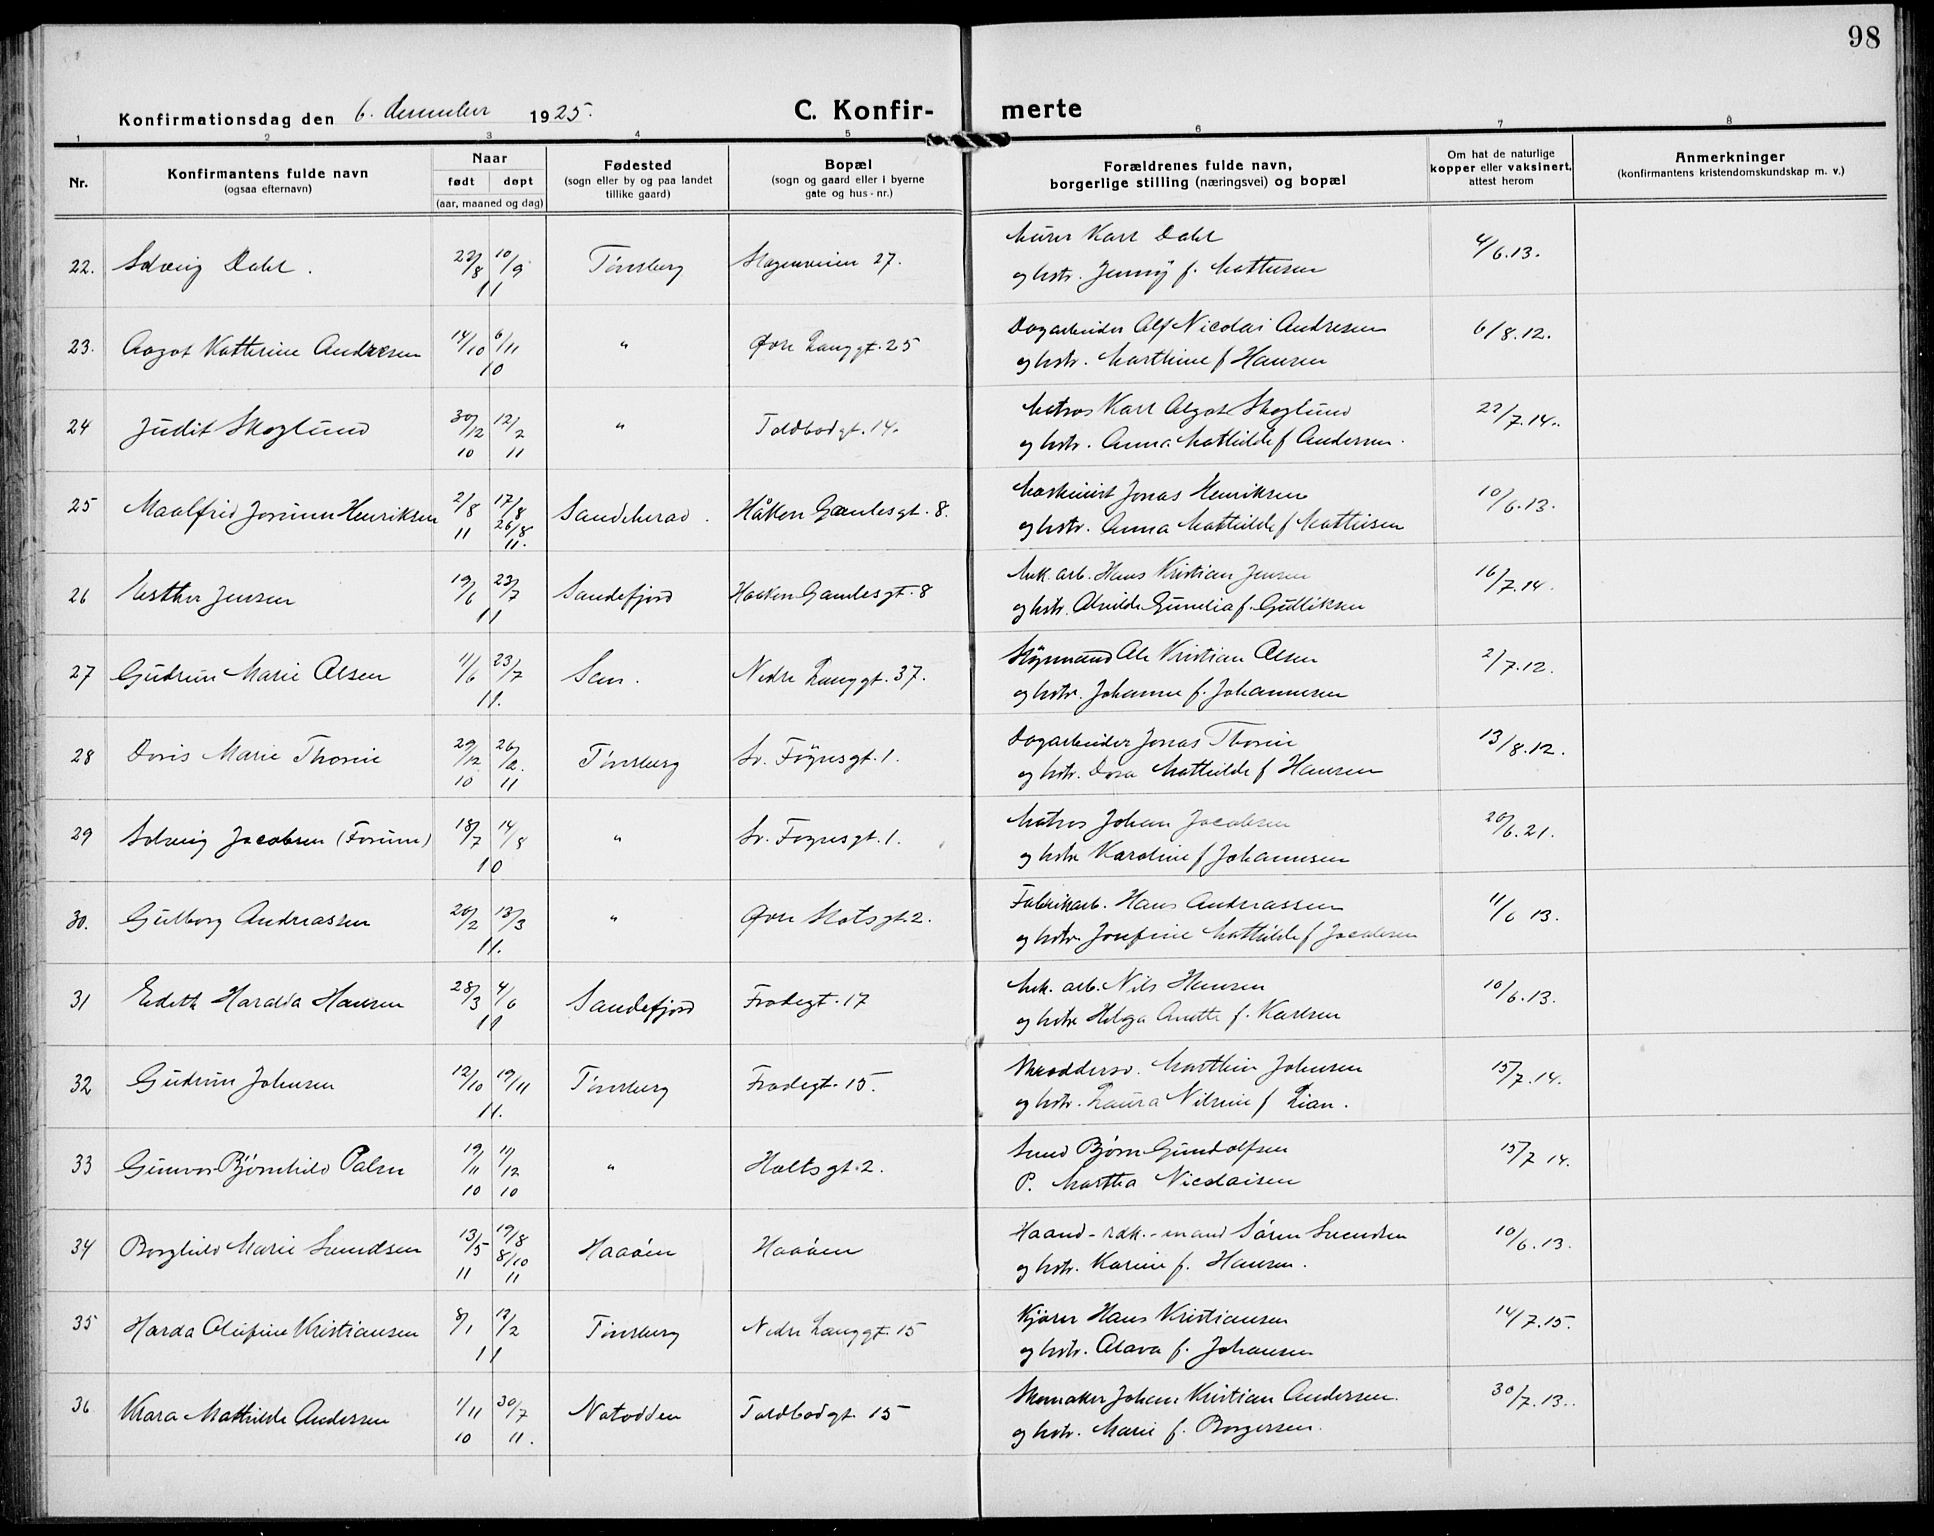 98
Konfirmationsdag den 6. december 1925.
C. Konfirmerte
1 2 3 4 5 6 7 8
Nr.
Konfirmantens fulde navn
(ogsaa efternavn)
Naar
født døpt
(aar, maaned og dag)
Fødested
(sogn eller by og paa landet
tillike gaard)
Bopæl
(sogn og gaard eller i byerne
gate og hus-nr.)
Forældrenes fulde navn,
borgerlige stilling (næringsvei) og bopæl
Om hat de naturlige
kopper eller vaksinert,
attest herom
Anmerkninger
(konfirmantens kristendomskundskap m. v.)
22. Solveig Dahl. 22/8 10/9 11 Tønsberg Stogenveien 27. Murer Karl Dahl 4/6.13.
og hstr. Jenny f. Mathisen
23. Aagot Katherine Andresen 14/10 6/11 10 " Øvre Langgt. 25 Dagarbeider Alf Nicolai Andresen 6/8.12.
og hstr. Marthine f Hansen
24 Judit Skoglund 30/12 10 12/2 11 " Toldbodgt. 14. Matros Karl Algot Skoglund 22/7.14.
og hstr. Anna Mathilde f Andersen.
25 Maalfrid Jorunn Henriksen 2/8 11 17/8 26/8 11. Sandeherad. Håkon Gamlesgt. 8. Maskinist Jonas Henriksen 10/6.13.
og hstr. Anna Mathilde f Mathisen
26 Esther Jensen 19/6 23/7 11 Sandefjord Haakon Gamlesgt. 8 Mek. arb. Hans Kristian Jensen 16/7.14.
og hstr. Alvilde Gunelia f. Gulliksen
27 Gudrun Marie Olsen 11/6 23/7 11. Sem. Nedre Langgt. 37. Styrmand Ole Kristian Olsen 2/7.12.
og hstr. Johanne f. Johannesen
28 Doris Marie Thorine 29/12 10 26/2. 11 Tønsberg Sv. Føynsgt. 1. Dagarbeider Jonas Thorine 13/8.12.
og hstr. Dora Mathilde f Hansen
29 Solveig Jacobsen (Forum) 18/7 14/8 10 " Sv. Foynsgt. 1. Matros Johan Jacobsen 20/6.21.
og hstr Karoline f Johannesen
30. Gulborg Andreassen 20/2 13/3 11. " Øvre Slotsgt. 2. Fabrikarb. Hans Andreassen 11/6 13.
og hstr Josefine Mathilde f Jacobsen
31 Edith Haralda Hansen 28/3 4/6 11 Sandefjord Frodegt. 17 Mek. arb. Nils Hansen 10/6.13.
og hstr Helga Anette f. Karlsen
32 Gudrun Johnsen 12/10 19/11 11. Tønsberg Frodegt. 15. Skræddersv. Marthin Johnsen 15/7.14.
og hstr. Laura Nilsine f Lian.
33 Gunvor Bjørnhild Palm 19/11 10 11/12 10 " Holtsgt. 2. Smed Bjørn Gundolfsen 15/7 14.
P. Martha Nicolaisen
34 Borghild Marie Svendsen 13/5 11 19/8 8/10 11 Haaøen Haaøen Haand-rdk.-mand Søren Svendsen 10/6.13.
og hstr. Karine f. Hansen.
35 Harda Olufine Kristiansen 8/1 12/2 11 Tønsberg Nedre Langgt. 15 Kjører Hans Kristiansen 14/7.15.
og hstr. Olava f. Johansen
36 Klara Mathilde Andersen 1/11 10 30/7 11. Notodden Toldbodgt 15 Skomaker Johan Kristian Andersen. 30/7.13.
og hstr. Marie f. Borgersen.